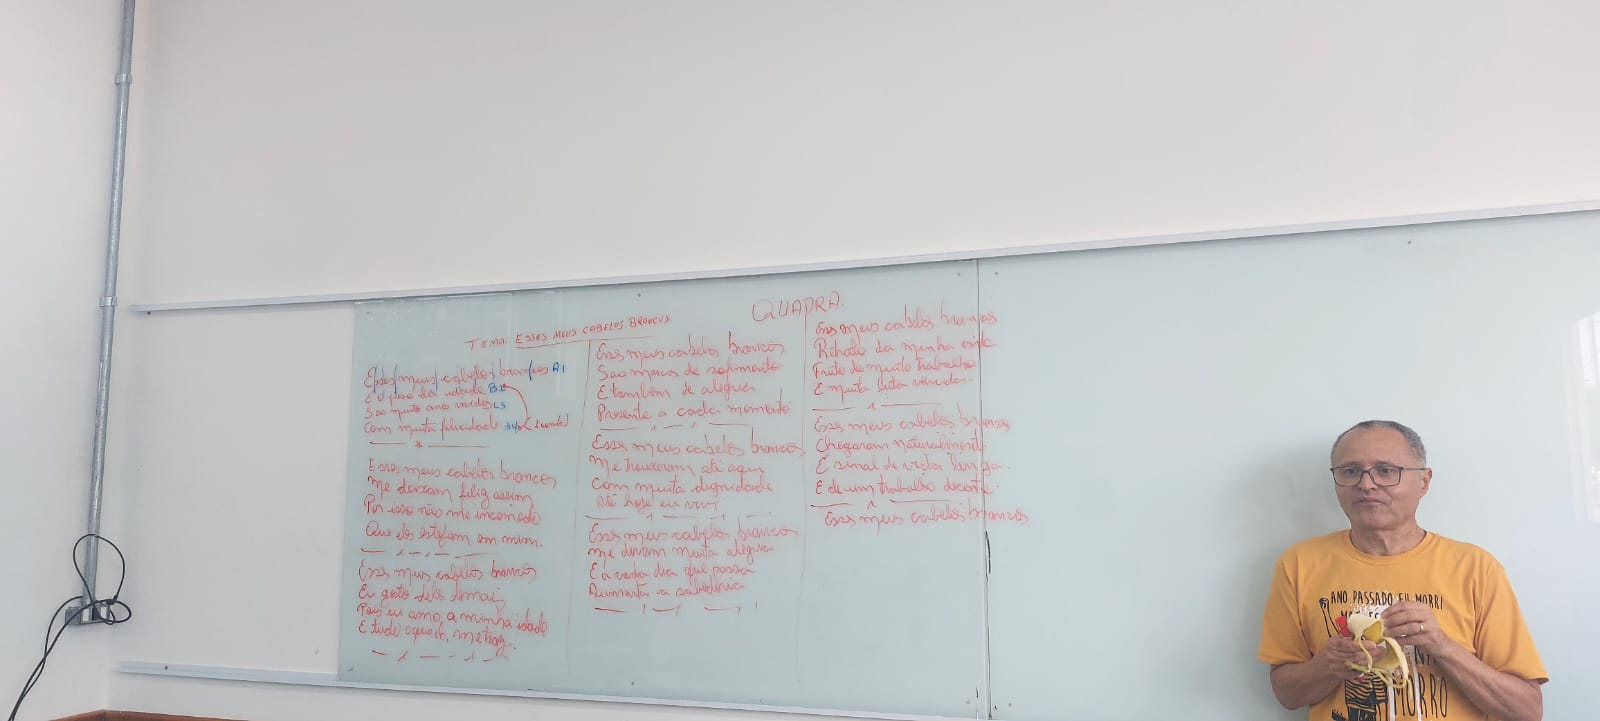 QUADRA.
TEMA: ESSES MEUS CABELOS BRANCOS.
Esses meus cabelos brancos A1
É o peso da idade B2
São muito anos vividos C3
Com muita felicidade
Esses meus cabelos brancos
Me deixam feliz assim
Por isso não me incomodo
Que eles estejam em mim.
Esses meus cabelos brancos
Eu gosto deles demais
Pois eu amo a minha idade
E tudo o que ela me traz.
Esses meus cabelos brancos
São marcas de sofrimento
E também de alegria
Presente a cada momento
Esses meus cabelos brancos
Me trouxeram até aqui
Com muita dignidade
Até hoje eu vivi
Esses meus cabelos brancos
Me deixam muita alegria
E a cada dia que passa
Aumenta a sabedoria
Esses meus cabelos brancos
Ritrato da minha vida
Fruto de muito trabalho
E muita luta vencida.
Esses meus cabelos brancos
Chegaram naturalmente
É sinal de vida
E de um trabalho decente.
Esses meus cabelos brancos
ANO PASSADO EU MORRI
MORRO